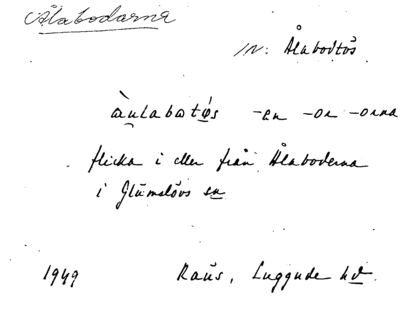 Ålabodarna
IN: Ålabodtös
-en -or -orna
flicka i eller från Ålaboderna
i Glumslövs sn
1949 Raus, Luggude hd.